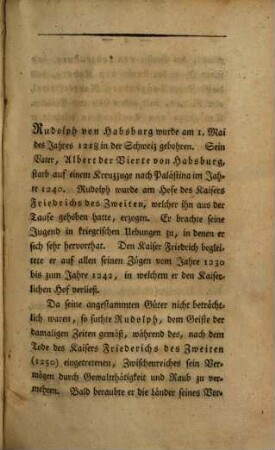 Rudolph von Habsburg wurde am 1. Mai
des Jahres 1218 in der Schweiz gebohren. Sein
Vater, Albert der Vierte von Habsburg,
starb auf einem Kreuzzuge nach Palästina im Jah-
re 1240. Rudolph wurde am Hofe des Kaisers
Friedrichs des Zweiten, welcher ihn aus der
Taufe gehoben hatte, erzogen. Er brachte seine
Jugend in kriegrischen Uebungen zu, in denen er
sich sehr hervorthat. Den Kaiser Friedrich beglei-
tete er auf allen seinen Zügen vom Jahre 1230
bis zum Jahre 1242, in welchem er den Kaiser-
lichen Hof verließ.
Da seine angestammten Güter nicht beträcht-
lich waren, so suchte Rudolph, dem Geiste der
damaligen Zeiten gemäß, während des, nach dem
Tode des Kaisers Friederichs des Zweiten
(1250) eingetretenen, Zwischenreiches sein Ver-
mögen durch Gewaltthätigkeit und Raub zu ver-
mehren. Bald beraubte er die Länder seines Vet-